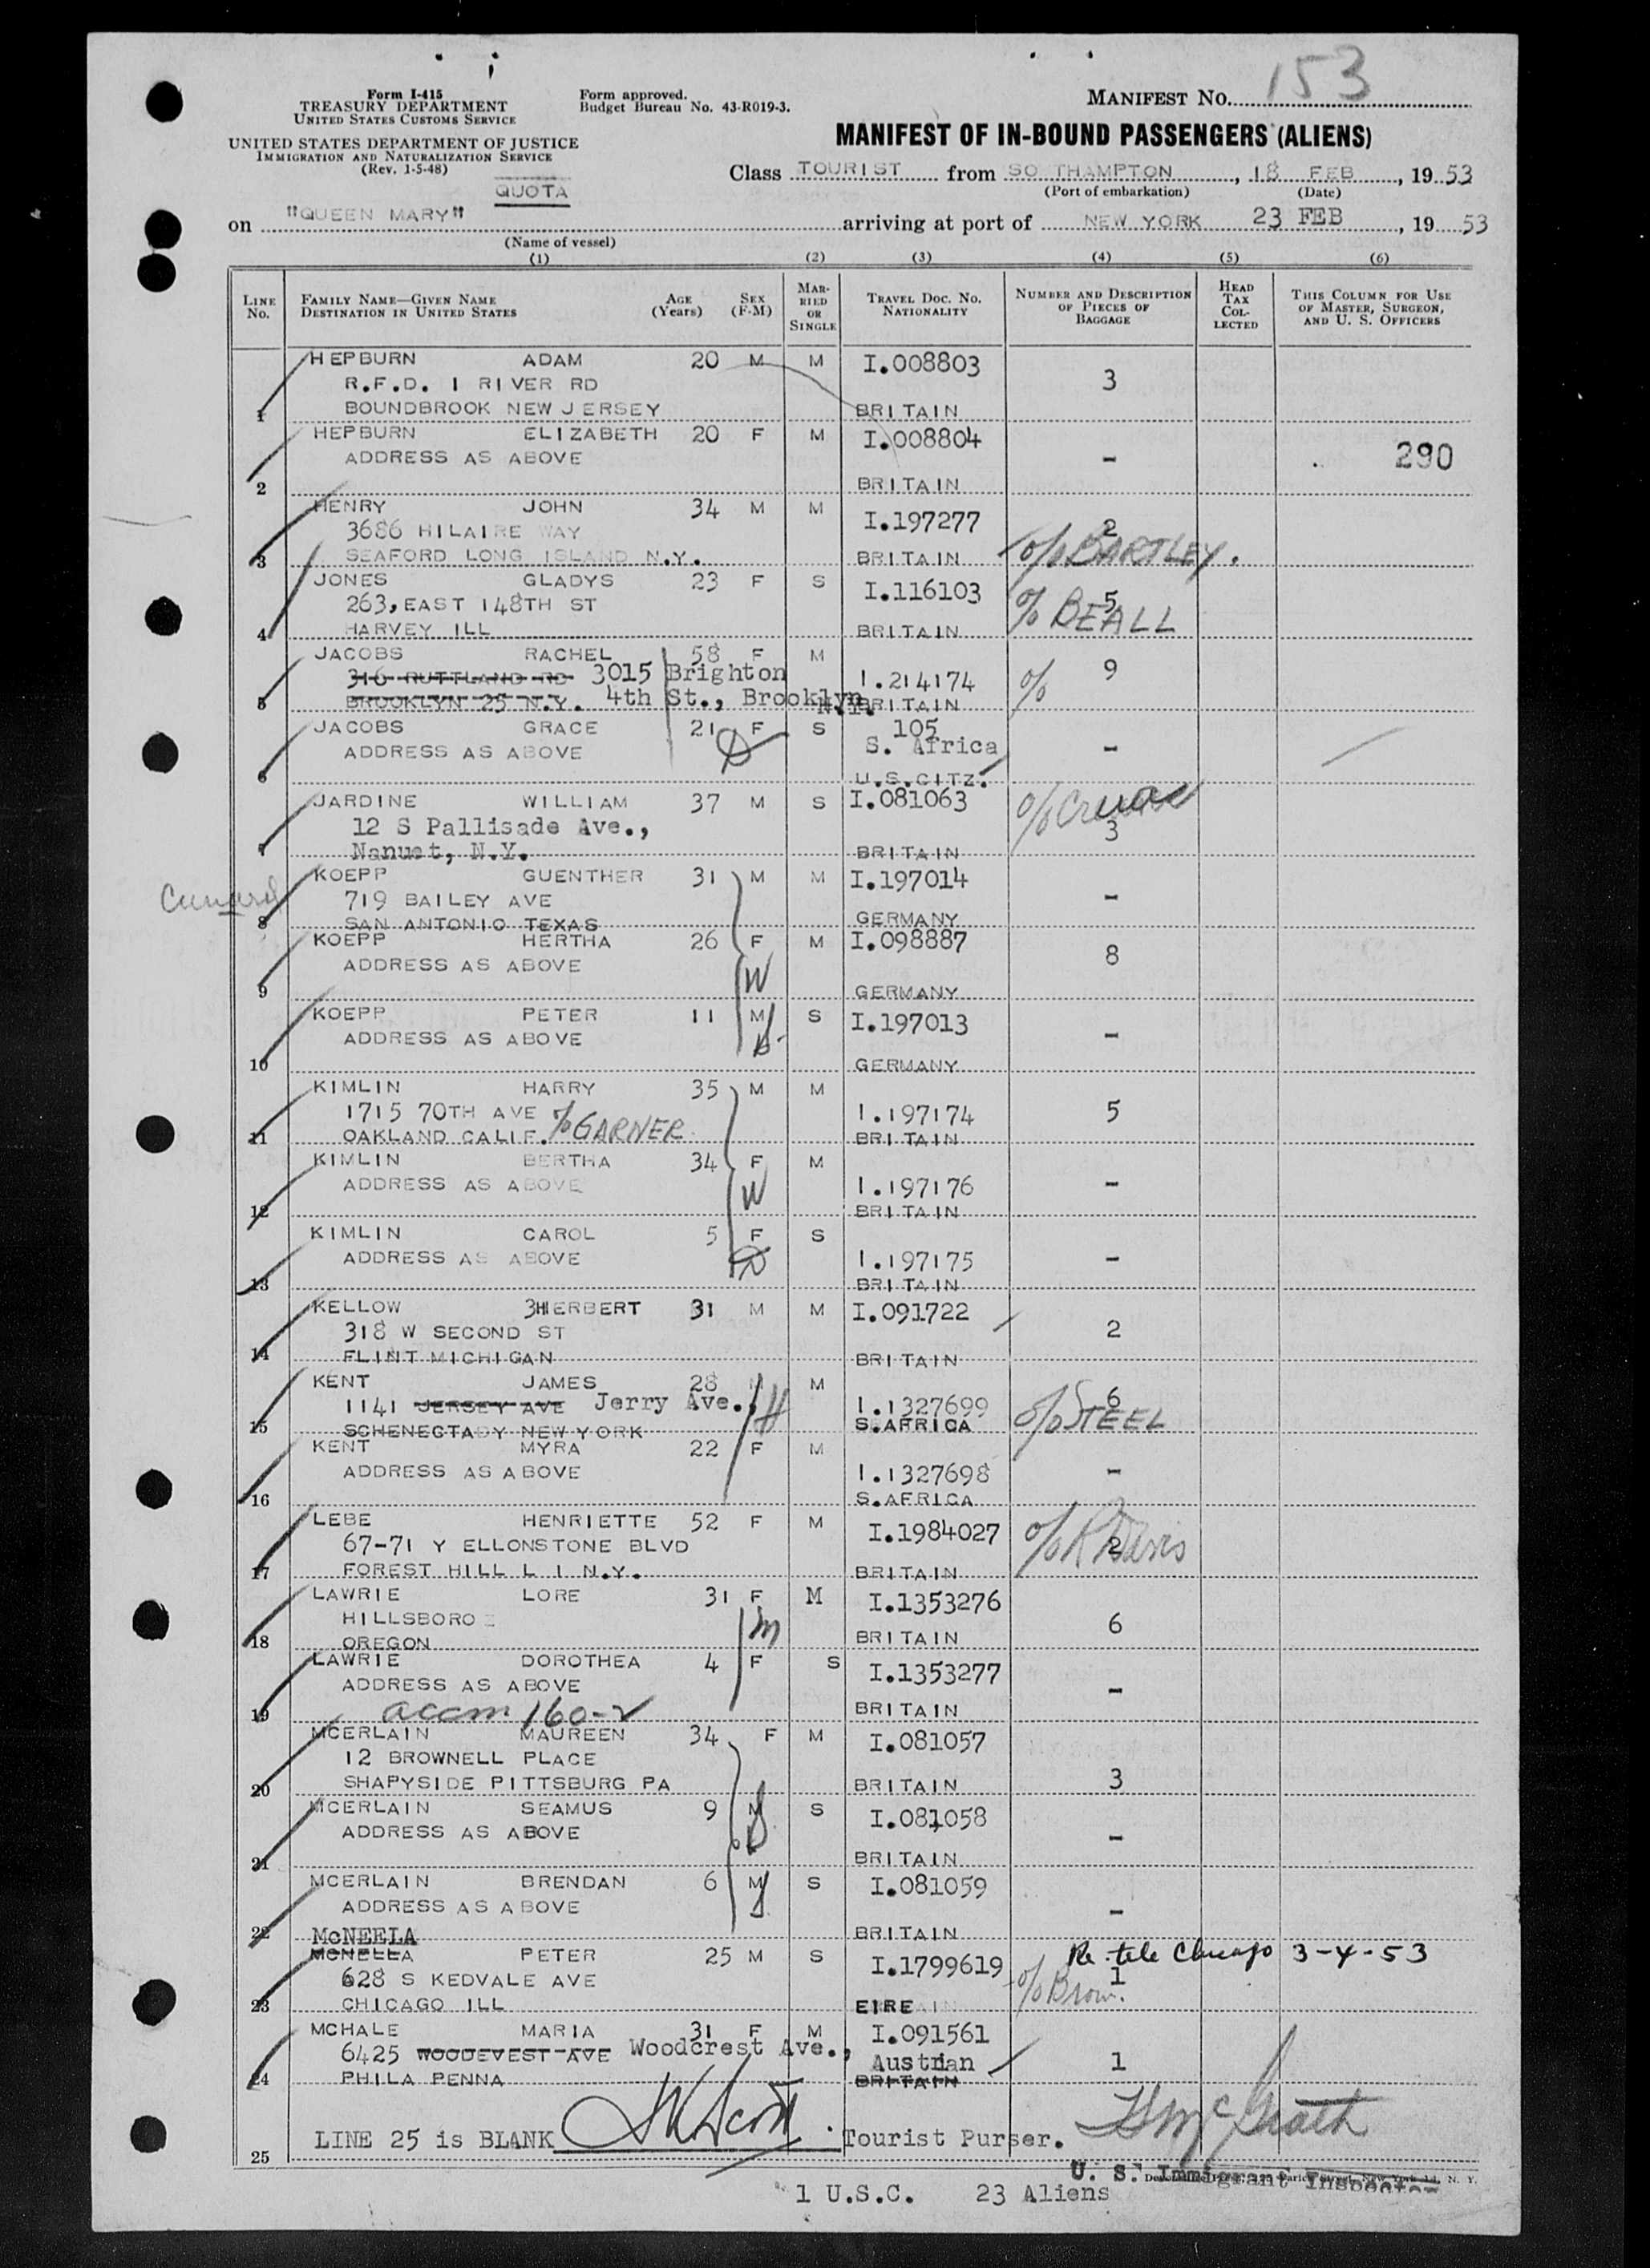 153
Form I-415
TREASURY DEPARTMENT
UNITED STATES CUSTOMS SERVICE
UNITED STATES DEPARTMENT OF JUSTICE
IMMIGRATION AND NATURALIZATION SERVICE
(Rev. 1-5-48)
Form approved.
Budget Bureau No. 43-R019-3.
MANIFEST NO.
MANIFEST OF IN-BOUND PASSENGERS (ALIENS)
Class TOURIST from SO THAMPTON, 18 FEB, 19 53
(Port of embarkation) (Date)
QUOTA
on "QUEEN MARY" arriving at port of NEW YORK 23 FEB, 19 53
(Name of vessel)
(1) (2) (3) (4) (5) (6)
LINE No. FAMILY NAME—GIVEN NAME DESTINATION IN UNITED STATES AGE (Years) SEX (F-M) MARRIED OR SINGLE TRAVEL DOC. NO. NATIONALITY NUMBER AND DESCRIPTION OF PIECES OF BAGGAGE HEAD TAX COLLECTED THIS COLUMN FOR USE OF MASTER, SURGEON, AND U. S. OFFICERS
HEPBURN ADAM 20 M M I.008803
R.F.D. 1 RIVER RD 3
1 BOUNDBROOK NEW JERSEY BRITAIN
HEPBURN ELIZABETH 20 F M I.008804
ADDRESS AS ABOVE - 290
2 BRITAIN
HENRY JOHN 34 M M I.197277
3686 HILAIRE WAY 2
3 SEAFORD LONG ISLAND N.Y. BRITAIN c/o BARTLEY.
JONES GLADYS 23 F S I.116103
263, EAST 148TH ST 5
4 HARVEY ILL BRITAIN c/o BEALL
JACOBS RACHEL 58 F M
316 RUTTLAND RD 3015 Brighton I.214174 c/o 9
5 BROOKLYN 25 N.Y. 4th St., Brooklyn N.Y. BRITAIN
JACOBS GRACE 21 F S 105
ADDRESS AS ABOVE S. Africa -
6 U.S.CITZ.
JARDINE WILLIAM 37 M S I.081063
12 S Pallisade Ave., 3
7 Nanuet, N.Y. BRITAIN
Cunard
KOEPP GUENTHER 31 M M I.197014
719 BAILEY AVE -
8 SAN ANTONIO TEXAS GERMANY
KOEPP HERTHA 26 F M I.098887
ADDRESS AS ABOVE W 8
9 GERMANY
KOEPP PETER 11 M S I.197013
ADDRESS AS ABOVE -
10 GERMANY
KIMLIN HARRY 35 M M
1715 70TH AVE I.197174 5
11 OAKLAND CALIF. c/o GARNER BRITAIN
KIMLIN BERTHA 34 F M
ADDRESS AS ABOVE W I.197176 -
12 BRITAIN
KIMLIN CAROL 5 F S
ADDRESS AS ABOVE D I.197175 -
13 BRITAIN
KELLOW HERBERT 31 M M I.091722
318 W SECOND ST 2
14 FLINT MICHIGAN BRITAIN
KENT JAMES 28 M
1141 JERSEY AVE Jerry Ave., H I.1327699 6
15 SCHENECTADY NEW YORK S.AFRICA c/o STEEL
KENT MYRA 22 F M
ADDRESS AS ABOVE I.1327698 -
16 S.AFRICA
LEBE HENRIETTE 52 F M I.1984027
67-71 Y ELLONSTONE BLVD 2
17 FOREST HILL L I N.Y. BRITAIN
LAWRIE LORE 31 F M I.1353276
HILLSBORO m 6
18 OREGON BRITAIN
LAWRIE DOROTHEA 4 F S I.1353277
ADDRESS AS ABOVE -
19 accm 160-2 BRITAIN
MCERLAIN MAUREEN 34 F M I.081057
12 BROWNELL PLACE 3
20 SHAPYSIDE PITTSBURG PA BRITAIN
MCERLAIN SEAMUS 9 M S I.081058
ADDRESS AS ABOVE -
21 BRITAIN
MCERLAIN BRENDAN 6 M S I.081059
ADDRESS AS ABOVE -
22 BRITAIN
McNEELA
MCNELLA PETER 25 M S I.1799619 Re tele Chicago 3-4-53
628 S KEDVALE AVE 1
23 CHICAGO ILL EIRE c/o Brow.
MCHALE MARIA 31 F M I.091561
6425 WOODEVEST AVE Woodcrest Ave., Austrian 1
24 PHILA PENNA BRITAIN
25 LINE 25 is BLANK Tourist Purser.
U. S. Immigrant Inspector
1 U.S.C. 23 Aliens